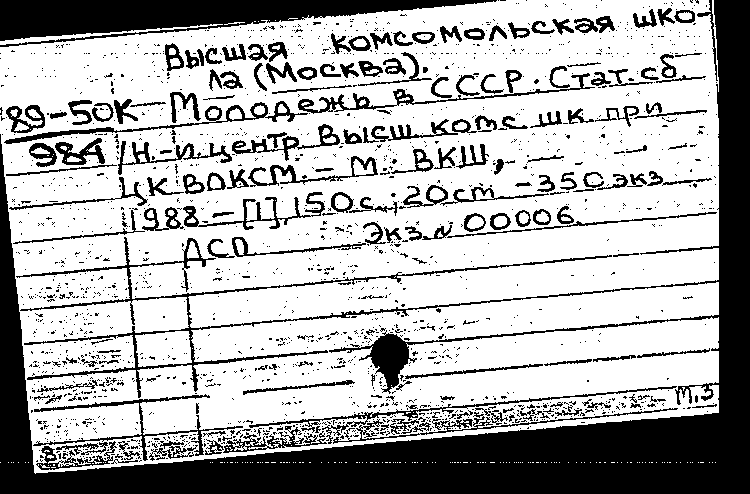 Высшая комсомольская шко-
ла (Москва).
89-50К Молодежь в СССР: Стат. сб.
984 /Н.-и. центр Высш комс. шк. при
ЦК ВЛКСМ. - М.: ВКШ,
1988. - [1], 150 с.; 20 ст - 350 экз
ДСП Экз. № 00006.
т.3